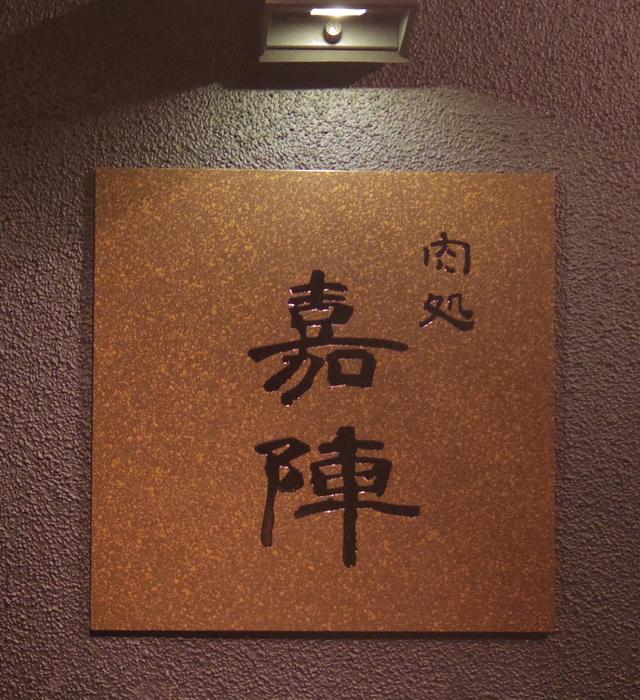 肉処
嘉陣